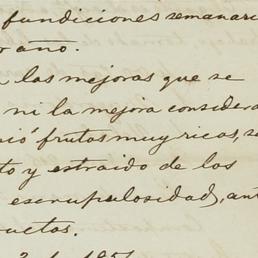 fundiciones semanari
r año.
las mejoras que se
ni la mejora considera
ió frutas muy ricas, se
to y estraido de los
escrupulosidad, ant
uctos.